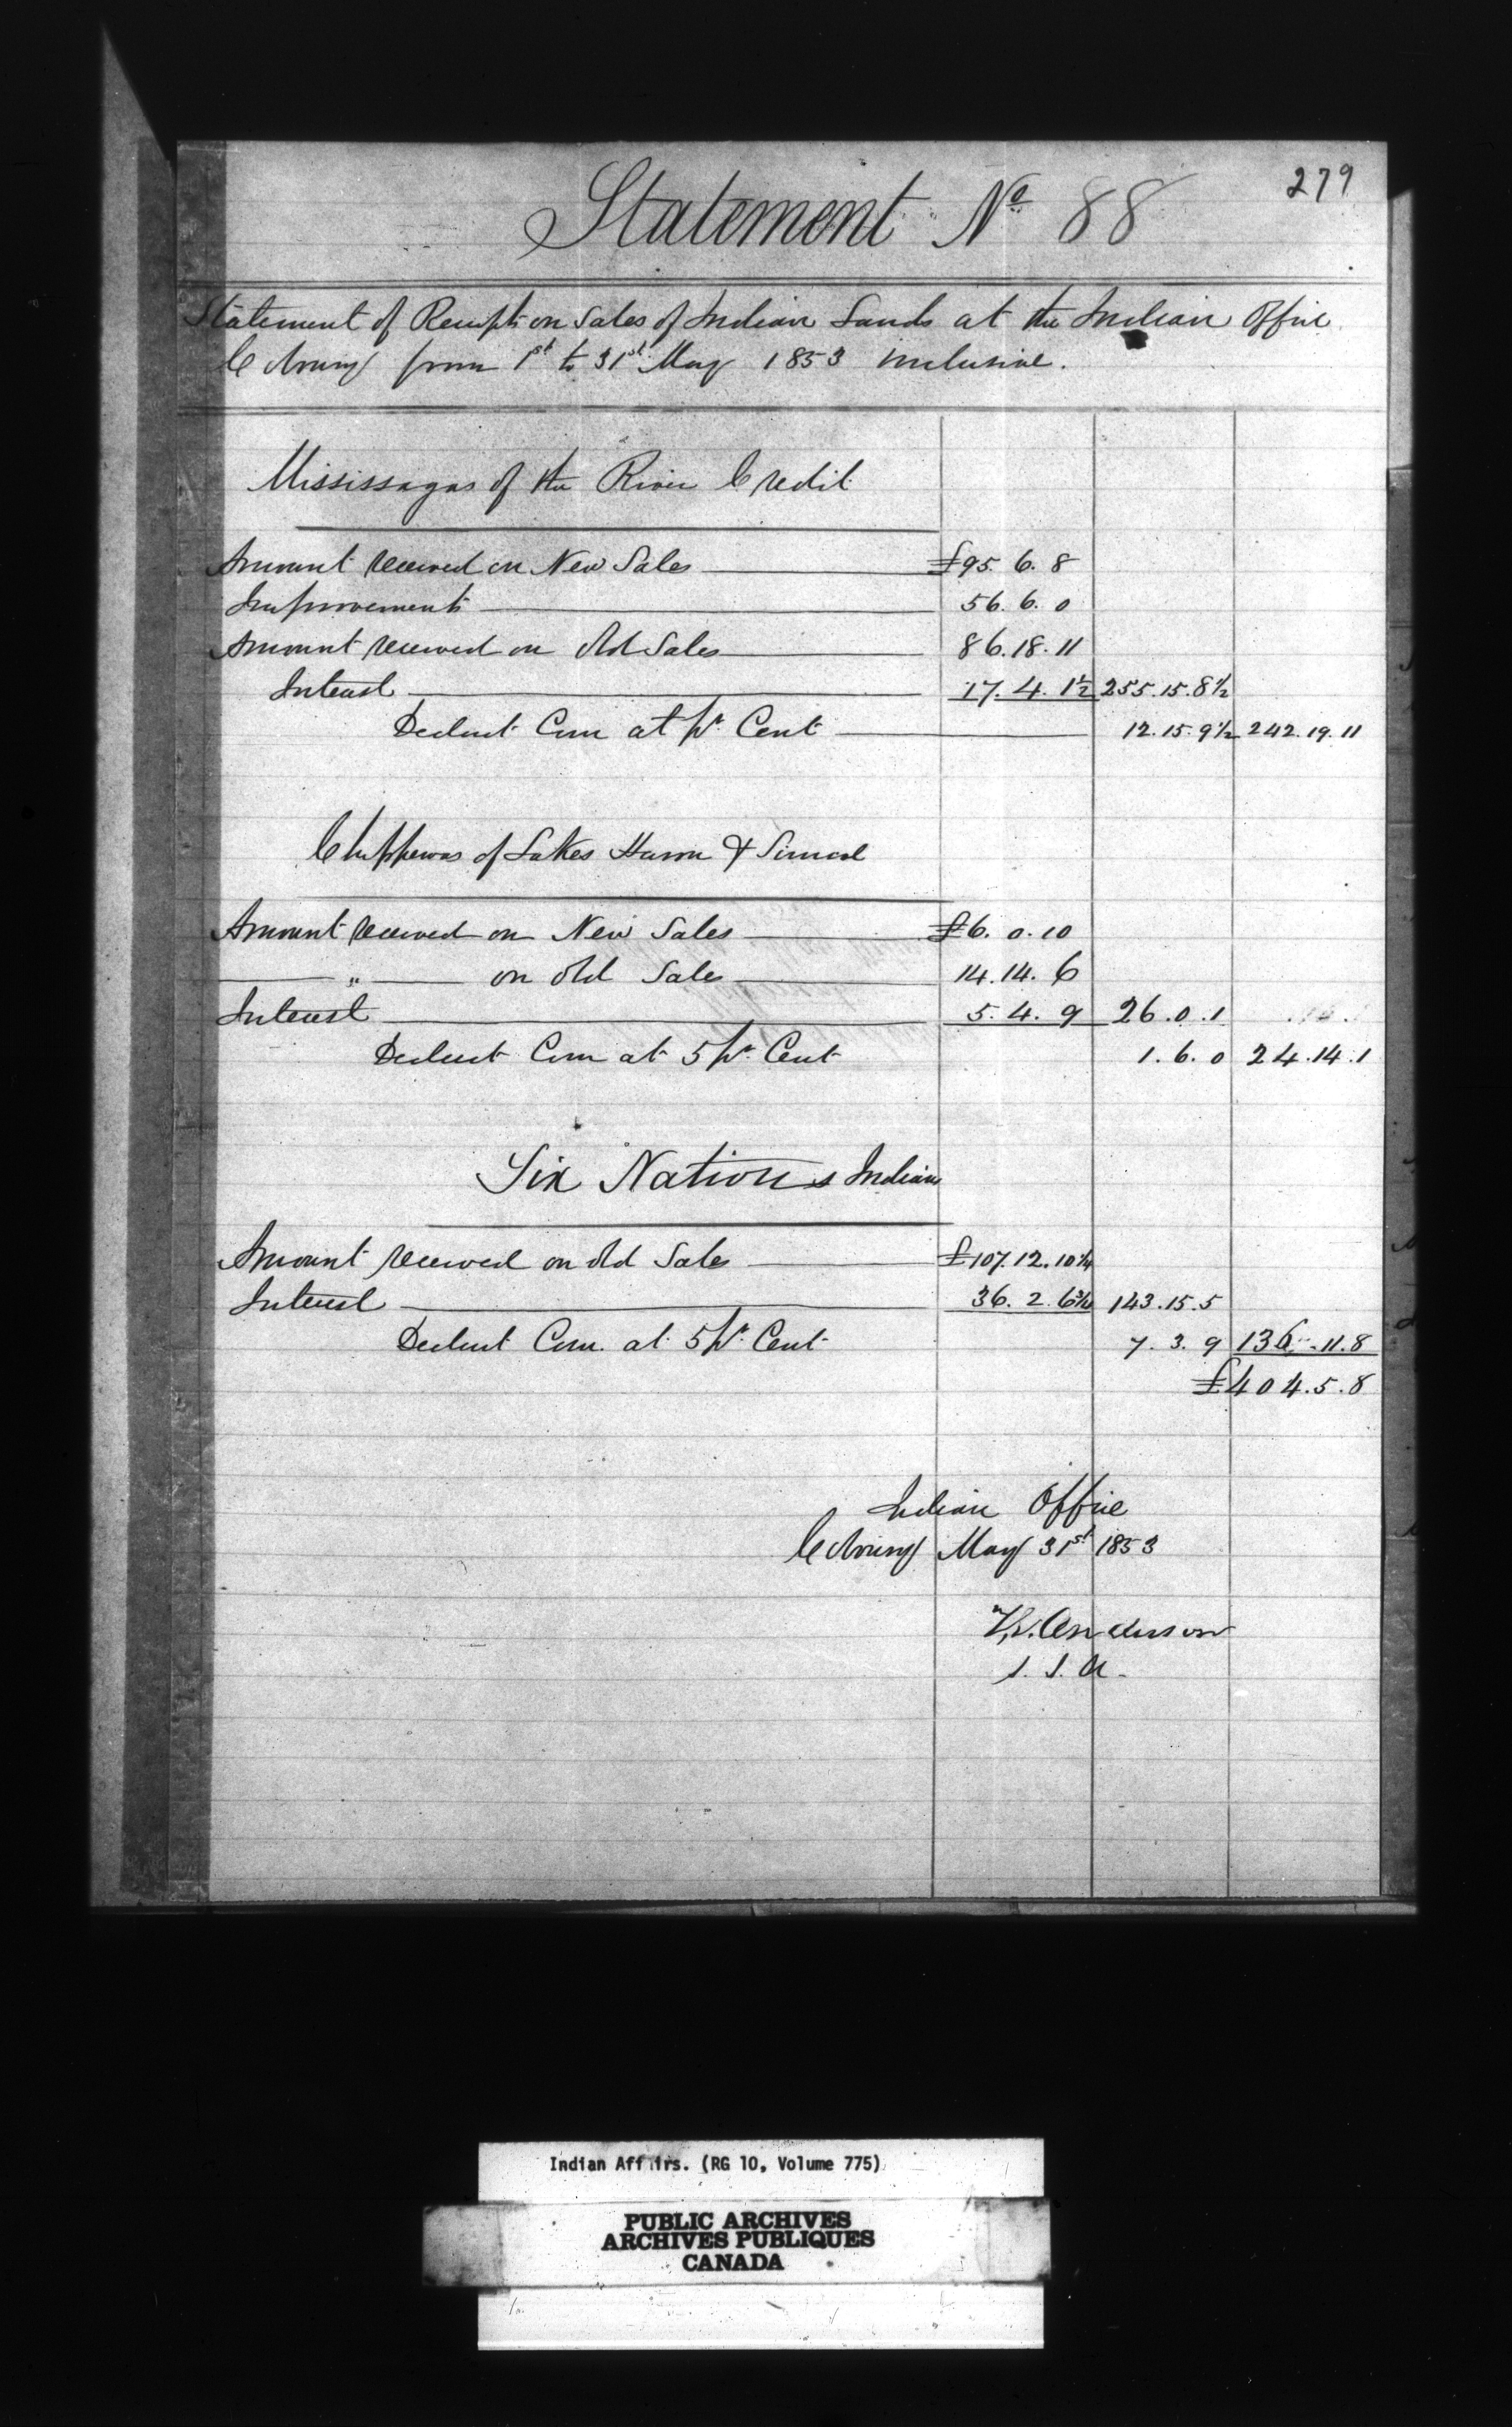 279
Statement No 88
Statement of Receipts on Sales of Indian Lands at the Indian Office
Cobourg from 1st to 31st May 1853 inclusive.
Mississagas of the River Credit
Amount received on New Sales £95. 6. 8
Improvements 56. 6. 0
Amount received on Old Sales 86. 18. 11
Interest 17. 4. 1½ 255. 15. 8½
Deduct Com at Pr. Cent 12. 15. 9½ 242. 19. 11
Chippewas of Lakes Huron & Simcoe
Amount received on New Sales £6. 0. 10
" on old Sales 14. 14. 6
Interest 5. 4. 9 26. 0. 1
Deduct Com at 5 Pr. Cent 1. 6. 0 24. 14. 1
Six Nations Indians
Amount received on old Sales £107. 12. 10¼
Interest 36. 2. 6¾ 143. 15. 5
Deduct Com. at 5 Pr. Cent 7. 3. 9 136. 11. 8
£404. 5. 8
Indian Office
Cobourg May 31st 1853
T.G. Anderson
S. I. A.
Indian Affairs. (RG 10, Volume 775)
PUBLIC ARCHIVES
ARCHIVES PUBLIQUES
CANADA